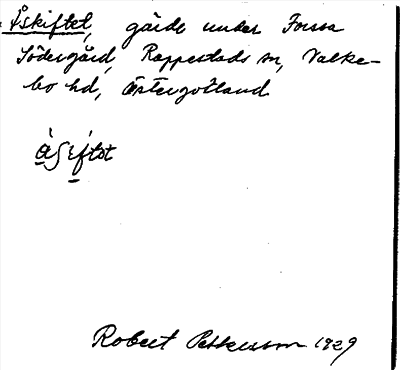 Åskiftet, gärde under Forssa
Södergård, Rappestads sn, Valke-
bo hd, Östergötland
Robert Pettersson 1929